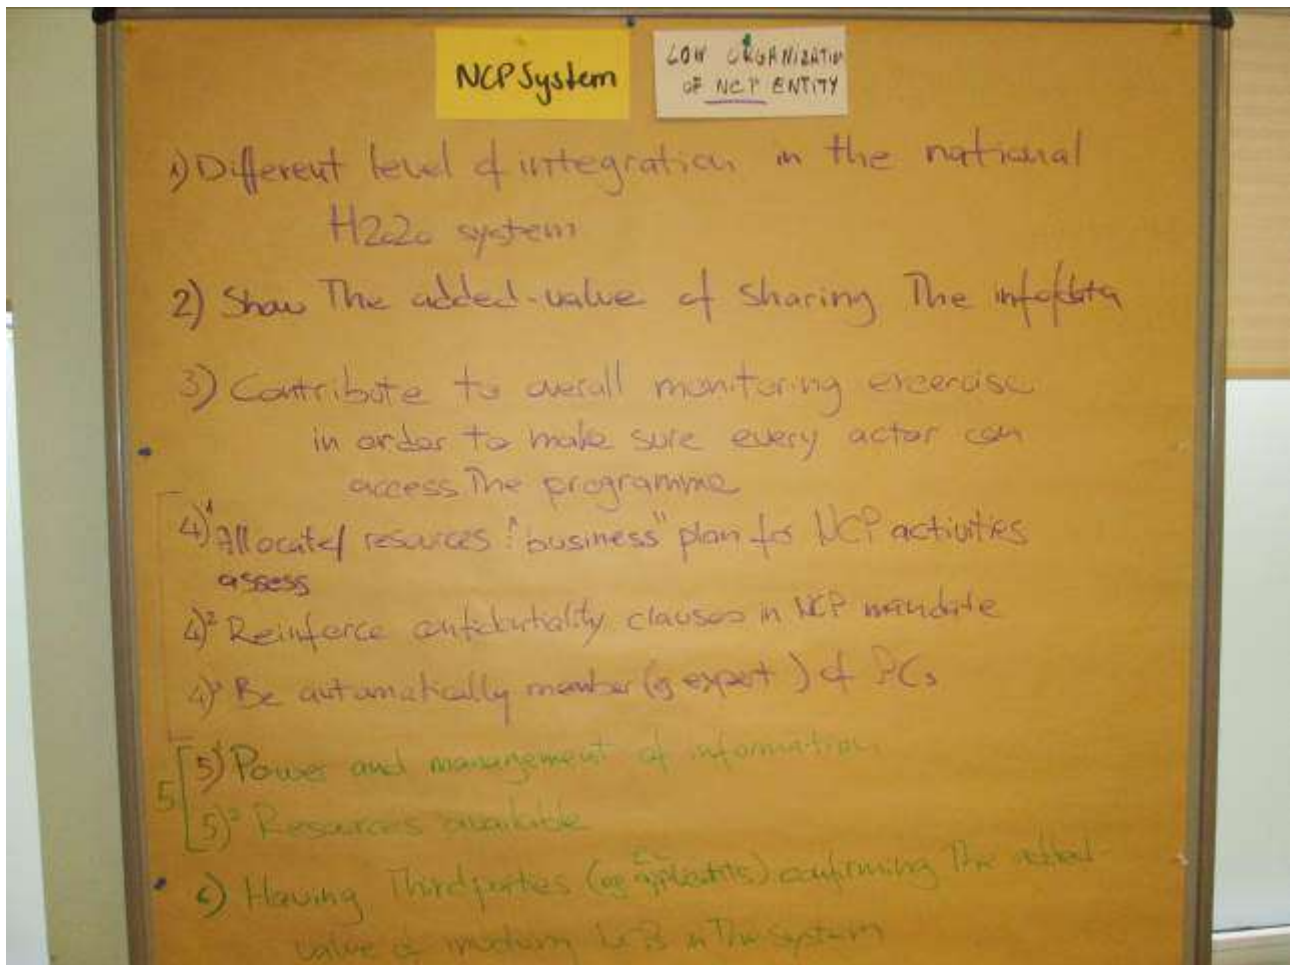 NCP System
LOW ORGANIZATION
OF NCP ENTITY
1) Different level of integration in the national
H2020 system
2) Show The added-value of sharing The info/data
3) Contribute to overall monitoring excercise
in order to make sure every actor can
access The programme
4)1 Allocated resources: "business" plan for NCP activities
assess
4)2 Reinforce clauses in NCP mandate
4)3 Be automatically member (eg expert) of PCs
5)1 Power and management of information
5
5)2 Resources available
6) Having Third parties (eg applicants) confirming The added
value of involving NCPs in The system